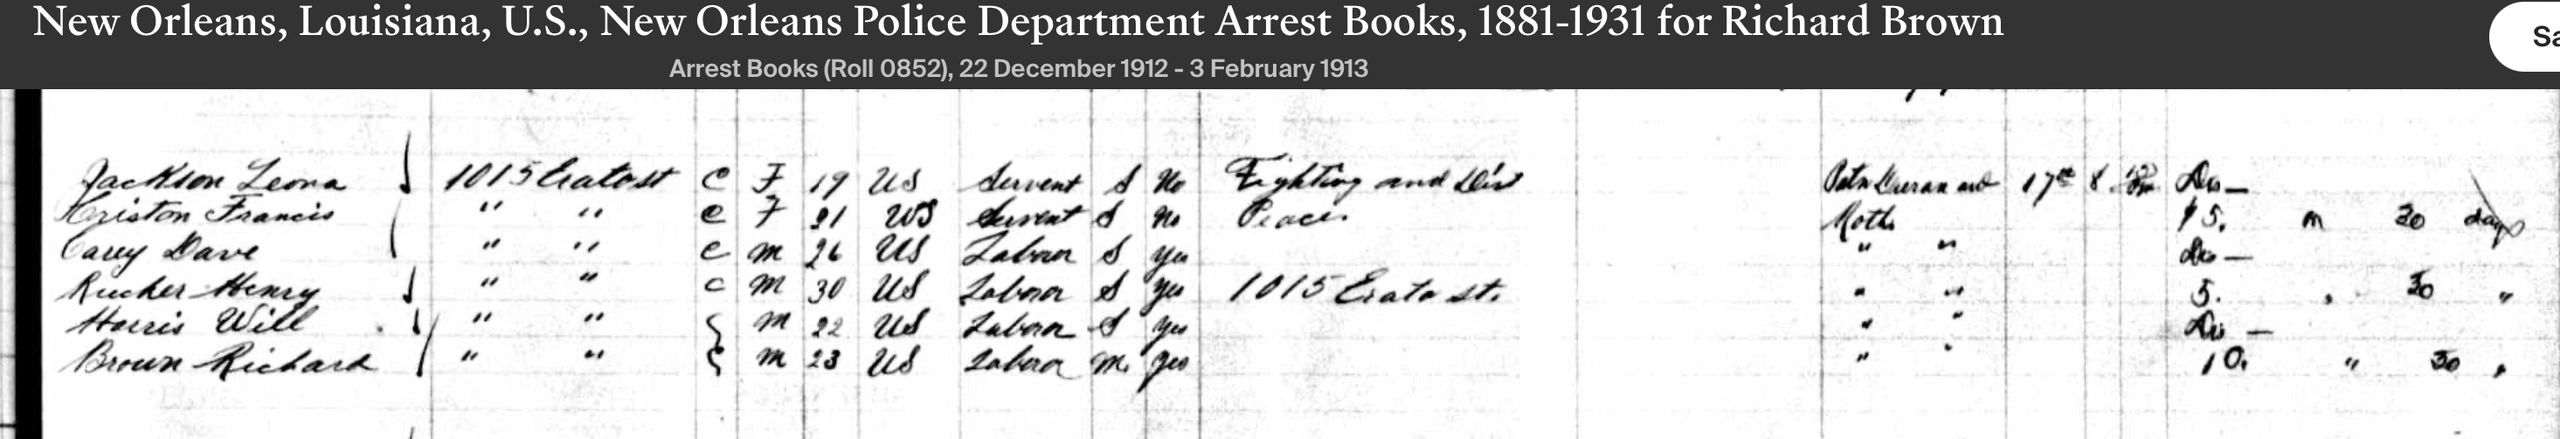 New Orleans, Louisiana, U.S., New Orleans Police Department Arrest Books, 1881-1931 for Richard Brown
Sa
Arrest Books (Roll 0852), 22 December 1912 - 3 February 1913
Jackson Leona 1015 Erato st c F 19 US Servent S No Fighting and Dis 17th 8 Dis —
Francis " " c F 21 US Servent S No Peace. Moth $5. or 30 days
Carey Dave " " c m 26 US Labor S yes " " Dis —
Rucher Henry " " c m 30 US Labor S yes 1015 Erato st. " " 5. " 30 "
Harris Will " " m 22 US Labor S yes " " Dis —
Brown Richard " " m 23 US Labor m. yes " " 10. " 30 "